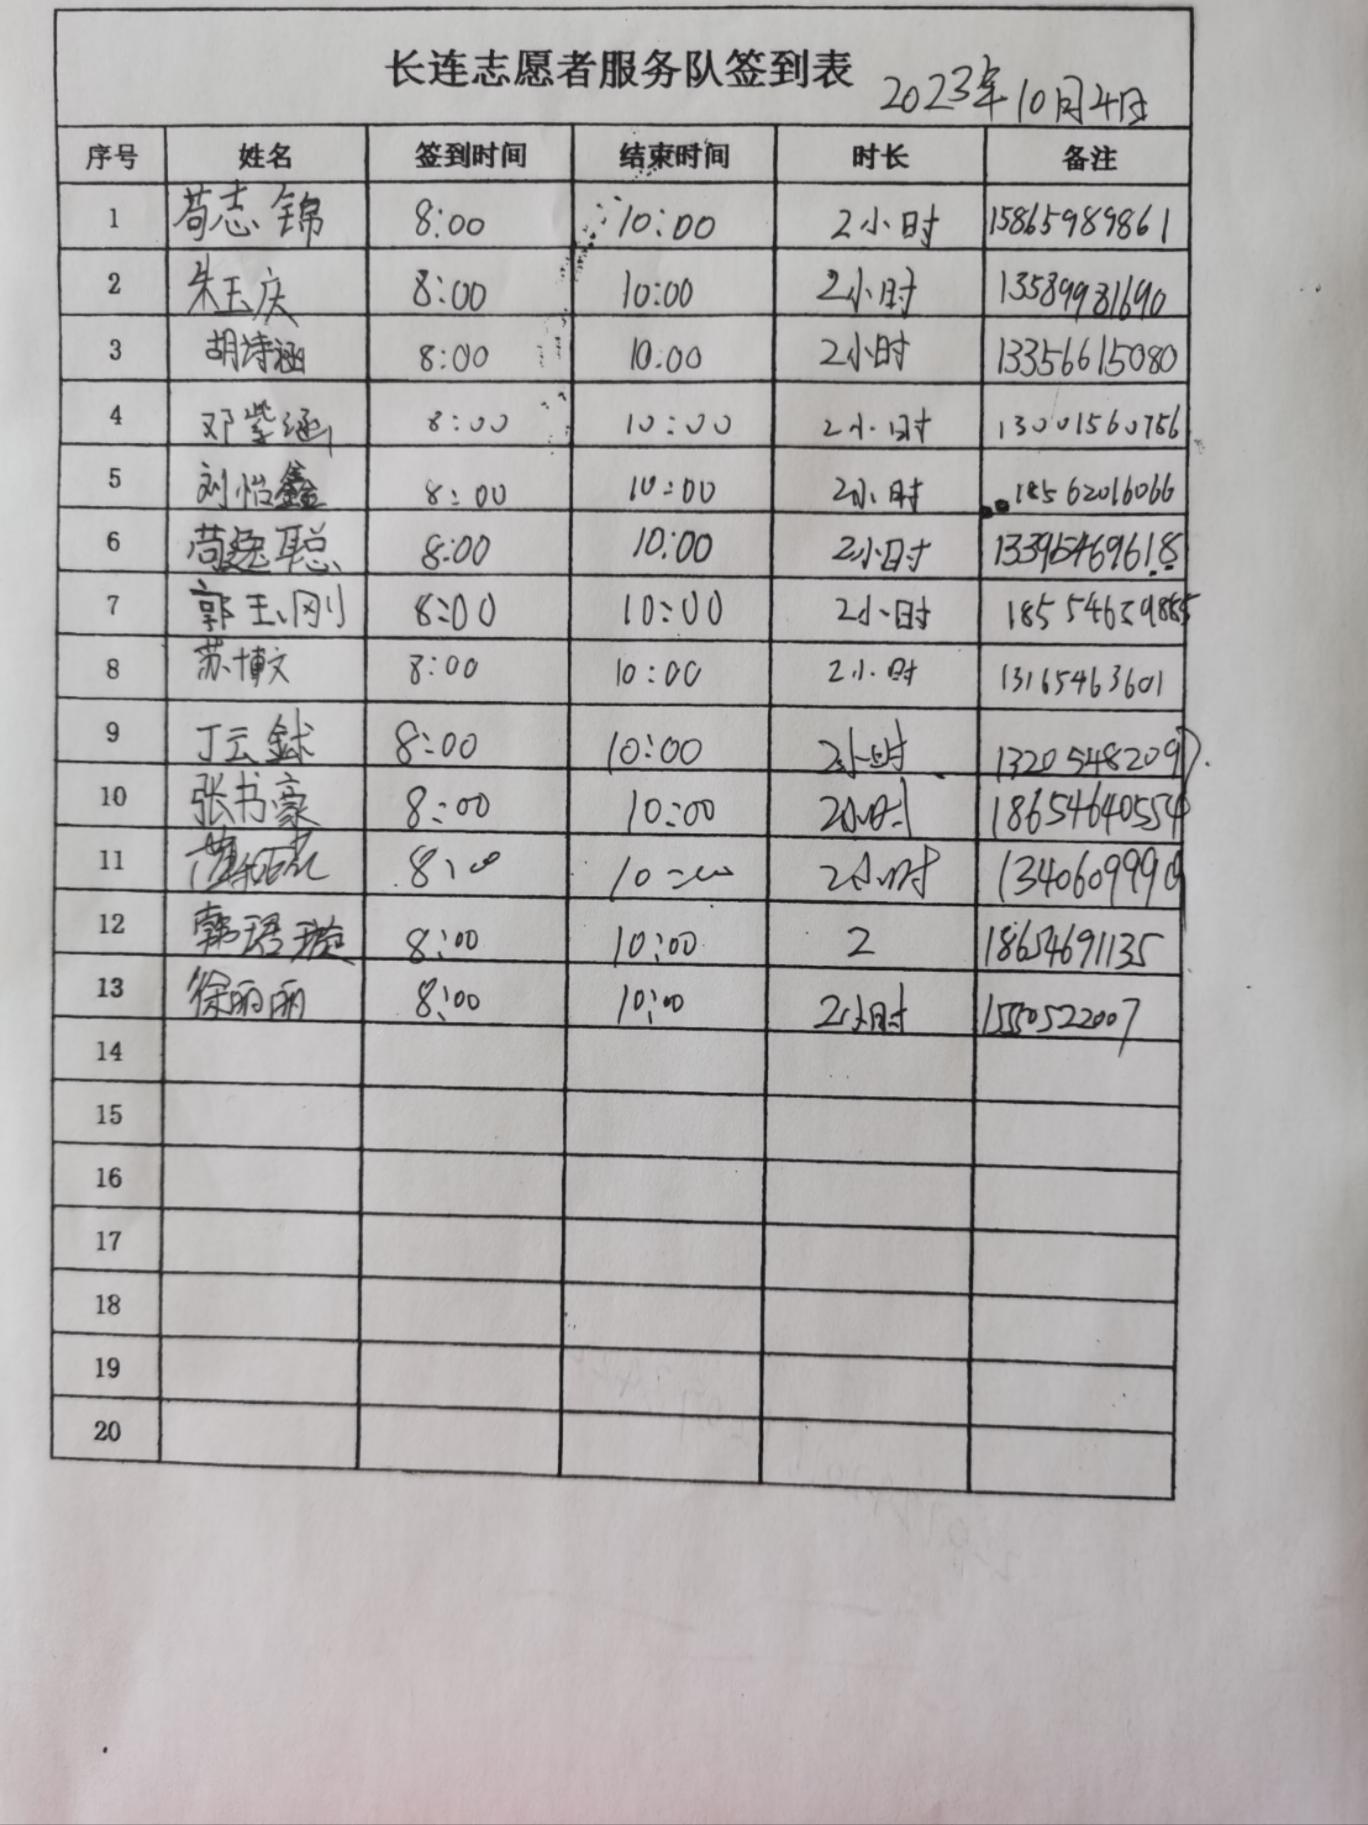 长连志愿者服务队签到表 2023年10月4日
序号 姓名 签到时间 结束时间 时长 备注
1 苟志锦 8:00 10:00 2小时 15865989861
2 朱玉庆 8:00 10:00 2小时 13589981690
3 胡诗涵 8:00 10:00 2小时 13356615080
4 邓紫涵 8:00 10:00 2小时 13001560756
5 刘怡鑫 8:00 10:00 2小时 18562016066
6 8:00 10:00 2小时 13395469618
7 郭玉刚 8:00 10:00 2小时
8 苏博文 8:00 10:00 2小时 13165463601
9 8:00 10:00 2小时 13205482097
10 张书豪 8:00 10:00 2小时 18654640554
11 8:00 10:00 2小时
12 韩珺璇 8:00 10:00 2 18654691135
13 徐丽丽 8:00 10:00 2小时 15550522007
14
15
16
17
18
19
20